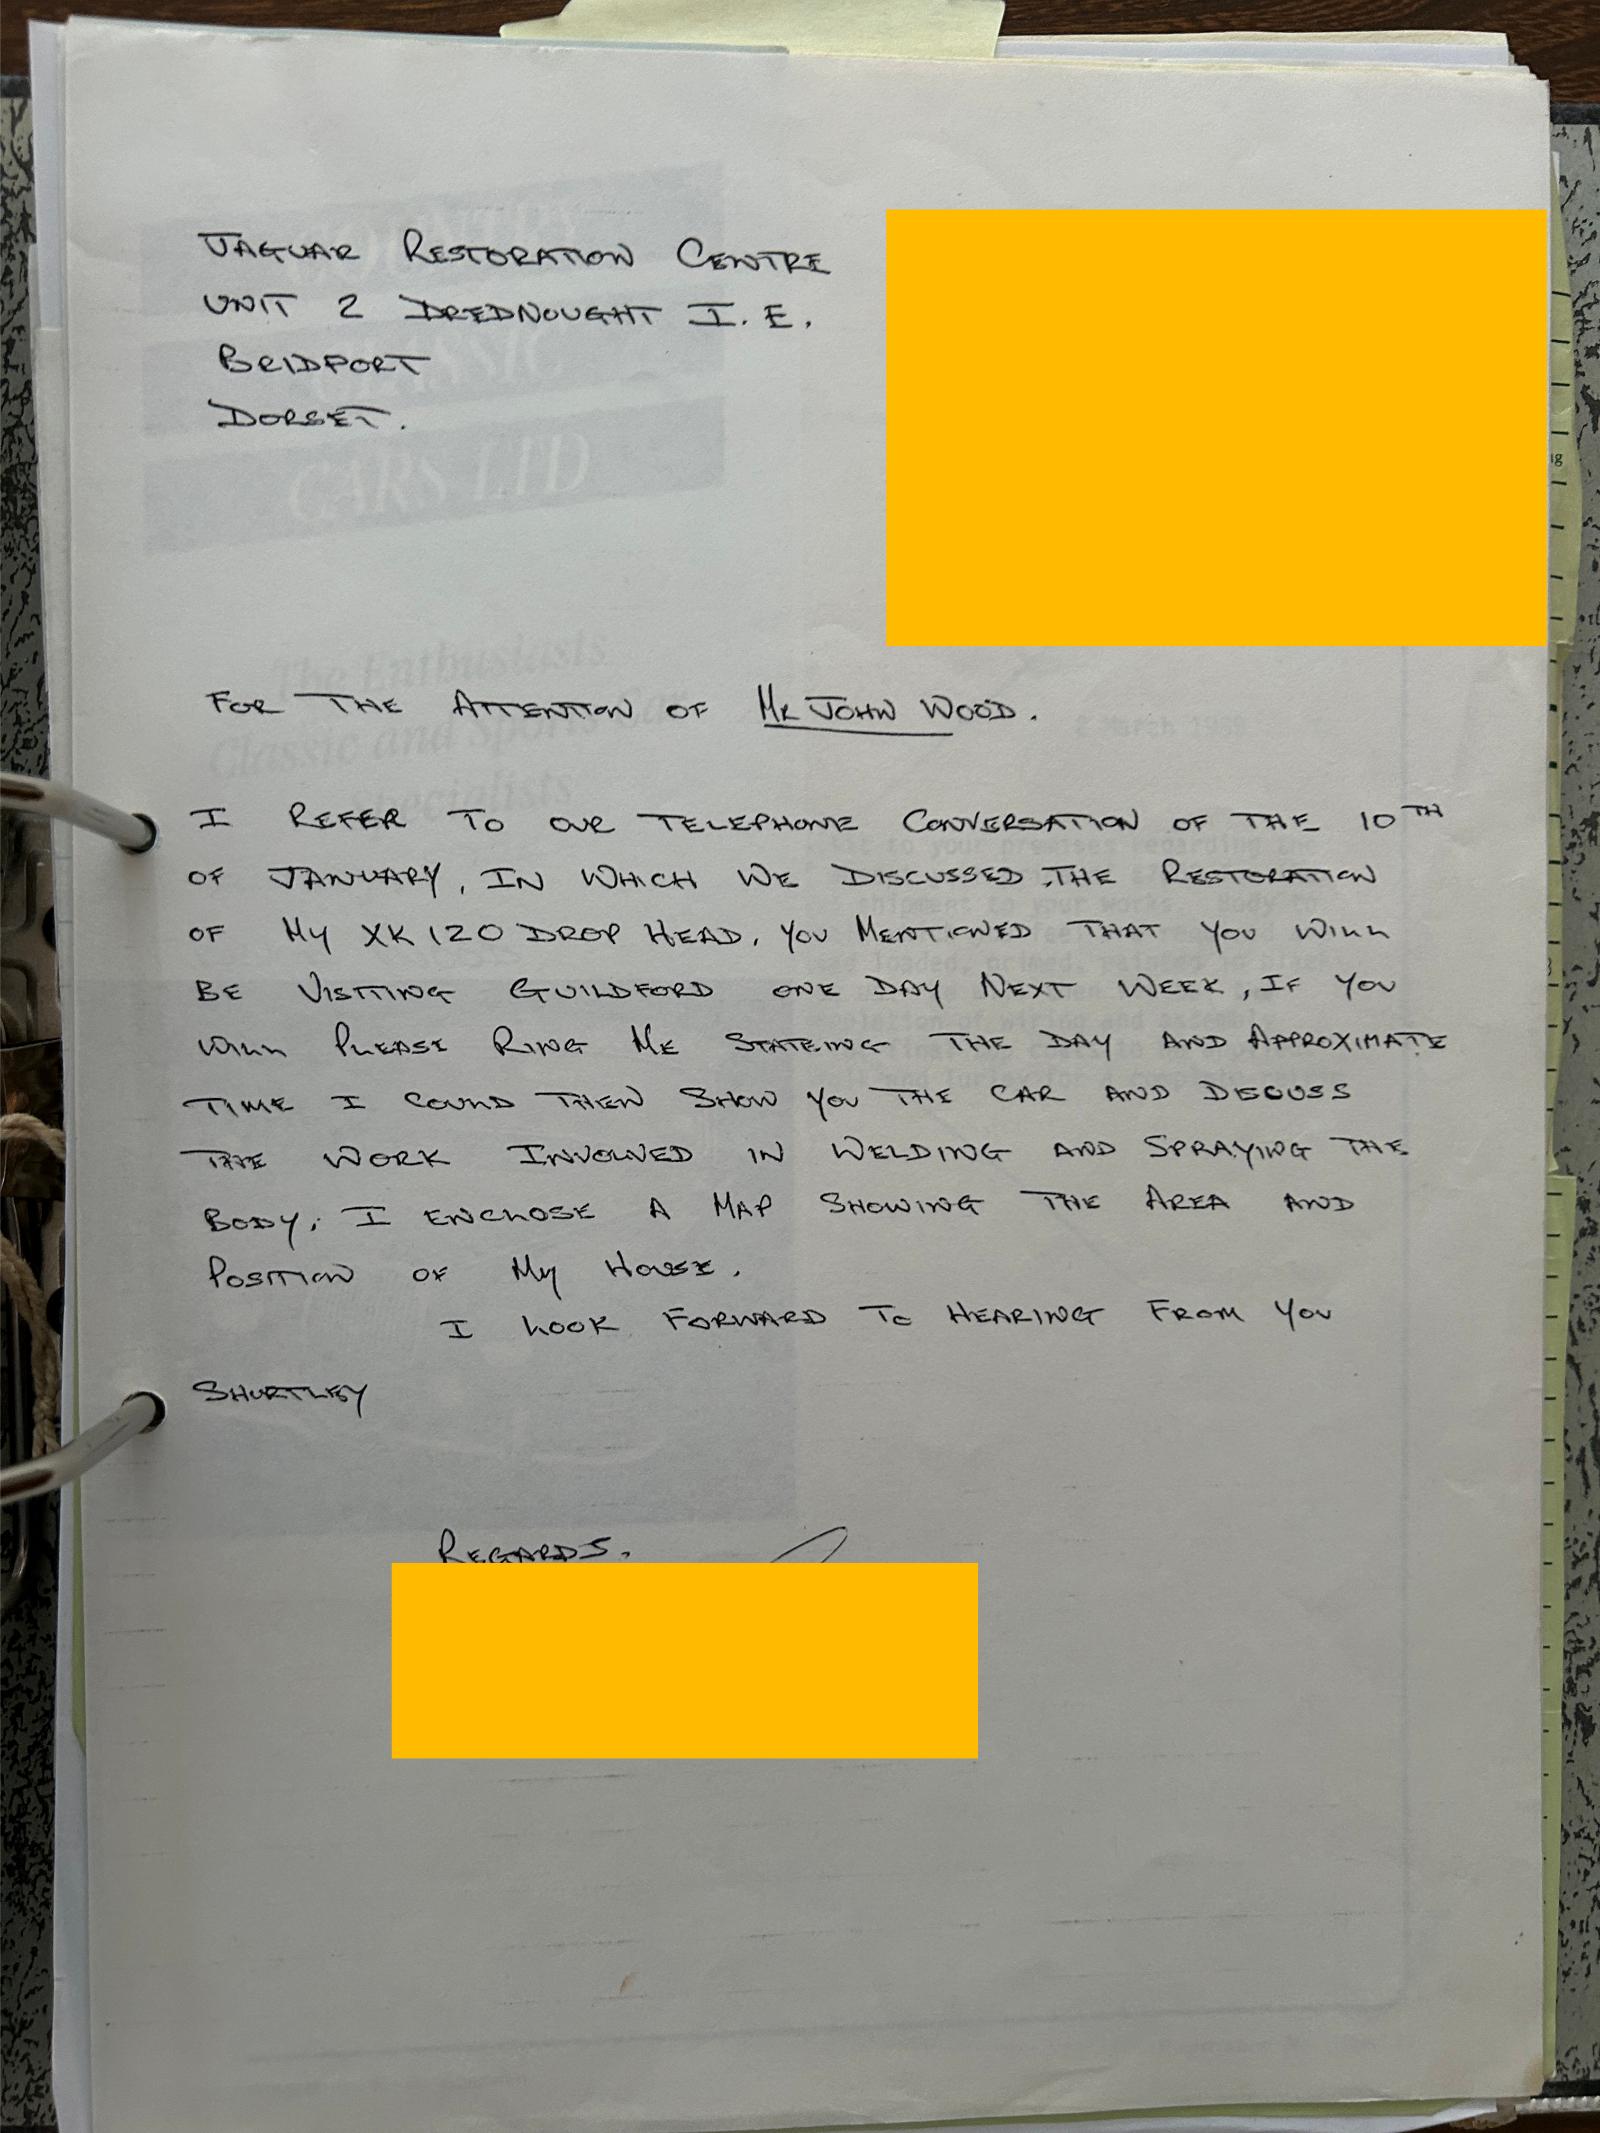 JAGUAR RESTORATION CENTRE
UNIT 2 DREDNOUGHT I.E.
BRIDPORT
DORSET.
CARS LTD
The Enthusiasts
Classic and Sports Car
Specialists
2 March 1989
FOR THE ATTENTION OF MR JOHN WOOD.
I REFER TO OUR TELEPHONE CONVERSATION OF THE 10TH
OF JANUARY, IN WHICH WE DISCUSSED THE RESTORATION
OF MY XK120 DROP HEAD, YOU MENTIONED THAT YOU WILL
BE VISITING GUILDFORD ONE DAY NEXT WEEK, IF YOU
WILL PLEASE RING ME STATEING THE DAY AND APPROXIMATE
TIME I COULD THEN SHOW YOU THE CAR AND DISCUSS
THE WORK INVOLVED IN WELDING AND SPRAYING THE
BODY, I ENCLOSE A MAP SHOWING THE AREA AND
POSITION OF MY HOUSE.
I LOOK FORWARD TO HEARING FROM YOU
SHORTLEY
REGARDS.